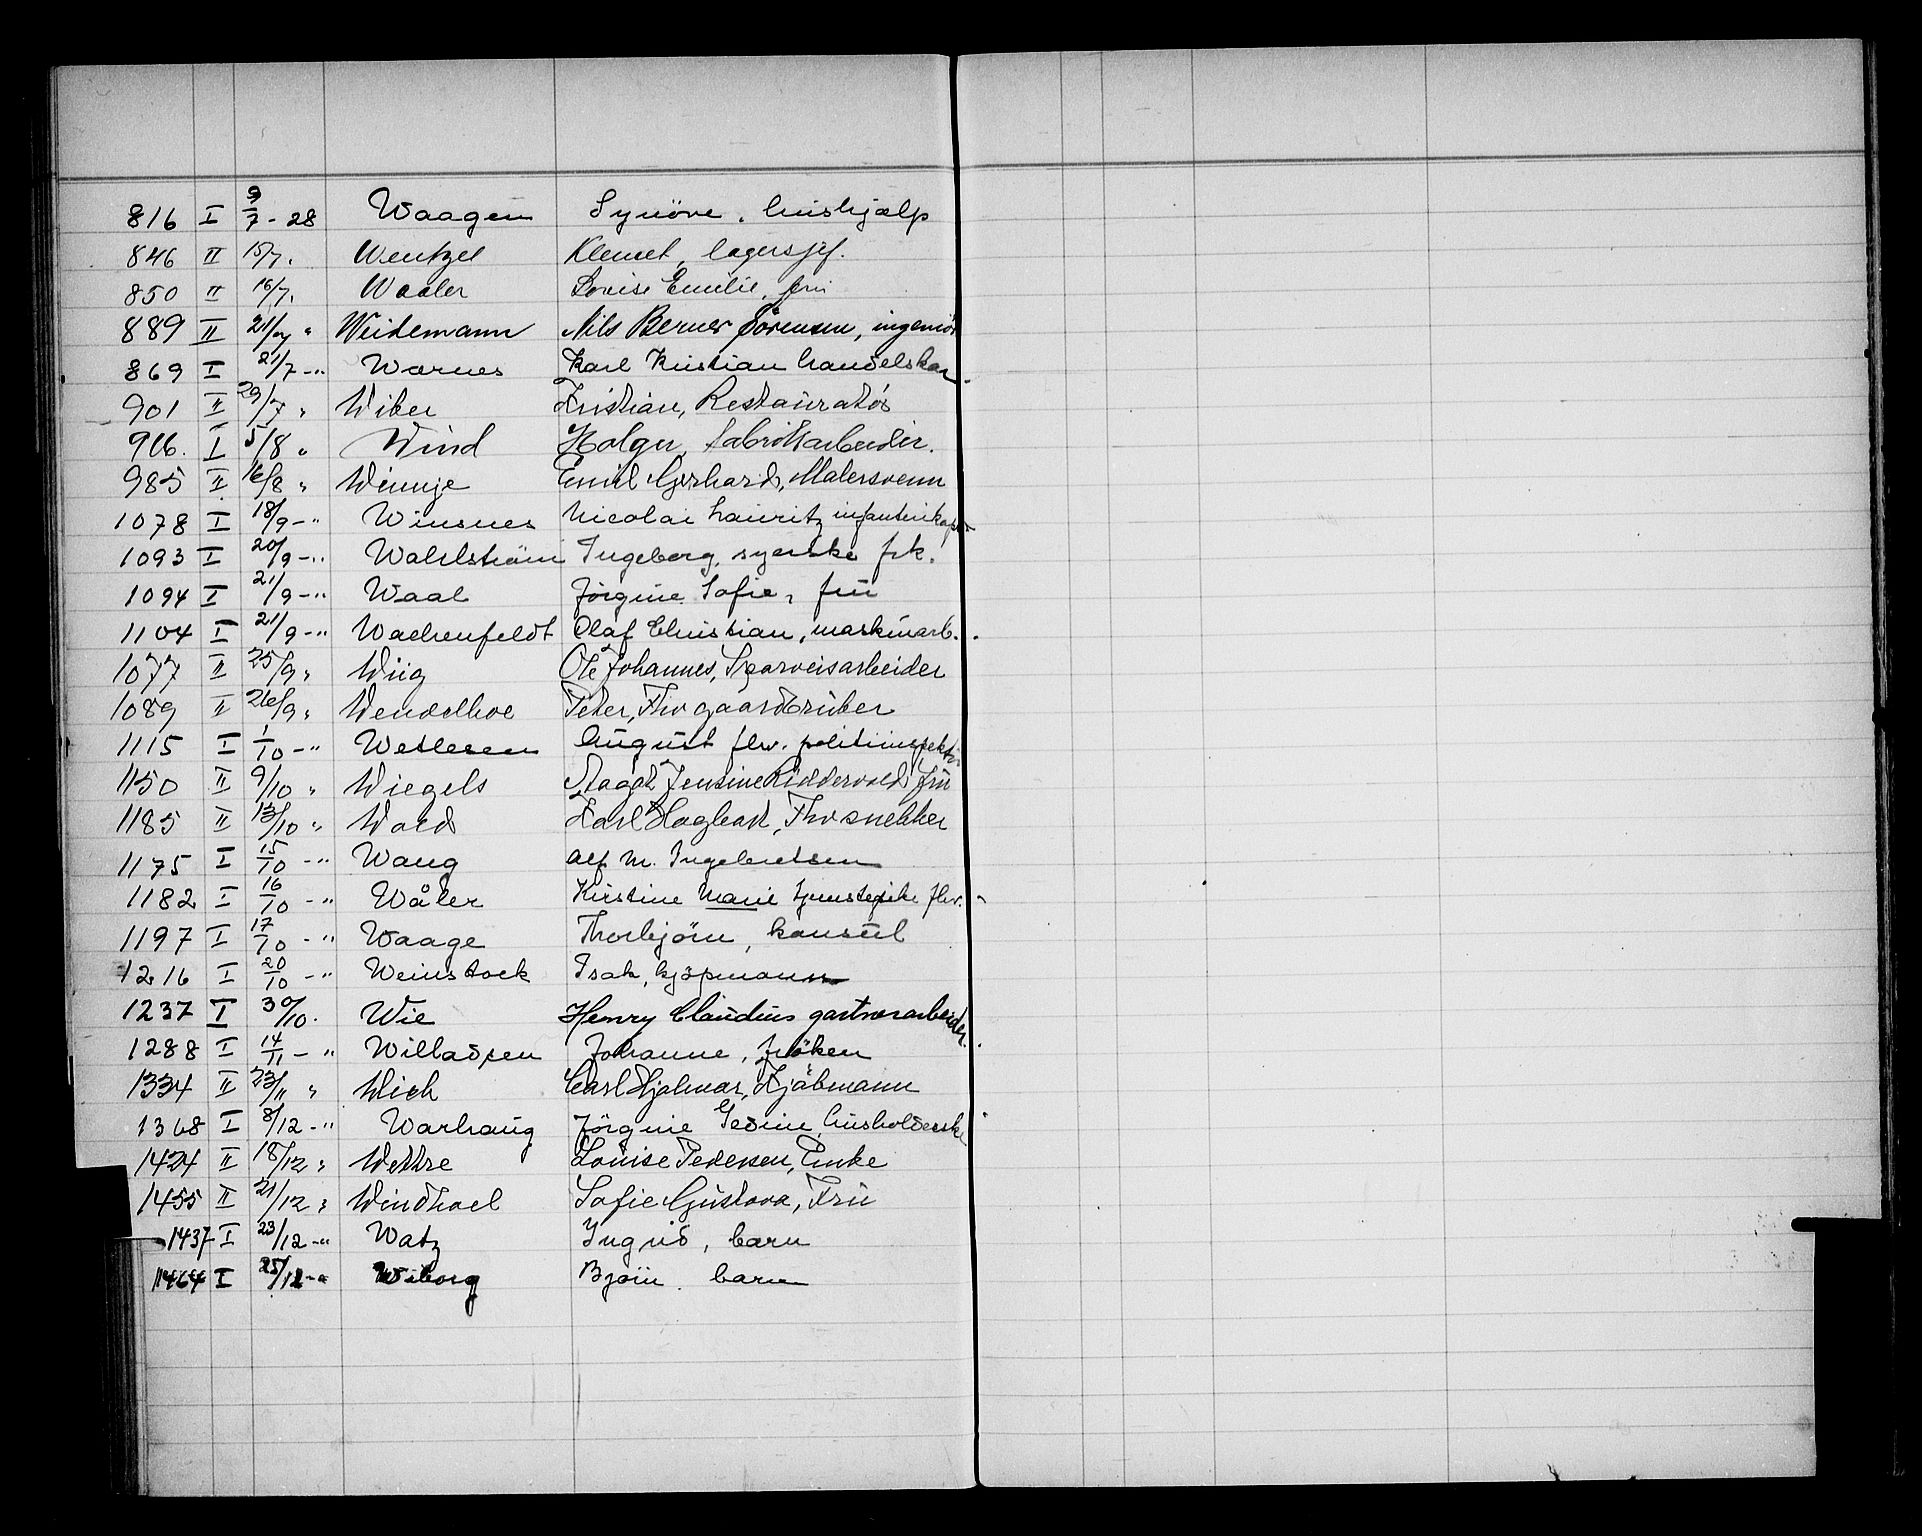 816 I 9/7 - 28 Waagen Synöve, hushjælp
846 II 15/7. Wentzel Klemet, lagersjef.
850 II 16/7. Waaler Lovise Emilie, fru
889 II 21/7 " Weidemann Nils Berner Sörensen, ingeniör
869 I 21/7 -" Warnes Karl Kristian handelskar
901 II 29/7 " Wiber Kristian, Restauratör
966. I 5/8 " Wind Holger, fabrikarbeider.
985 II 16/8 " Winnje Emil Gerhard, Malersvenn
1078 I 18/9 -" Winsnes Nicolai Lauritz infanterikapt
1093 I 20/9 -" Wahlström Ingeborg, syerske frk.
1094 I 21/9 -" Waal Jörgine Sofie, fru
1104 I 21/9 -" Wachenfeldt Olaf Christian, maskinarb.
1077 II 25/9 " Wiig Ole Johannes, Sporveisarbeider
1089 II 26/9 " Wendelboe Peter, Fhv gaardbruker
1115 I 1/10 -" Wetlesen August fhv. politiinspektör
1150 II 9/10 " Wiegels Aagot Jensine Riddervold, fru
1185 II 13/10 " Wold Karl Hagbart, Fhv snekker
1175 I 15/10 -" Wang Alf M. Ingebretsen
1182 I 16/10 -" Wåler Kirstine Marie tjenstepike fhv.
1197 I 17/10 -" Waage Thorbjörn, konsul
1216 I 20/10 -" Weinstock Isak, kjöpmann
1237 I 30/10. Wie Henry Claudius gartnerarbeider.
1288 I 14/11 -" Willadsen Johanne, fröken
1334 II 23/11 " Wick Carl Hjalmar, Kjöbmann
1368 I 8/12 -" Warhaug Jörgine Gedine, husholderske
1424 II 18/12 " Wettre Louise Pedersen, Enke
1455 II 21/12 " Windhoel Sofie Gustava, Fru
1437 I 23/12 -" Watz Ingrid, barn
1464 I 25/12 -" Wiborg Bjørn barn